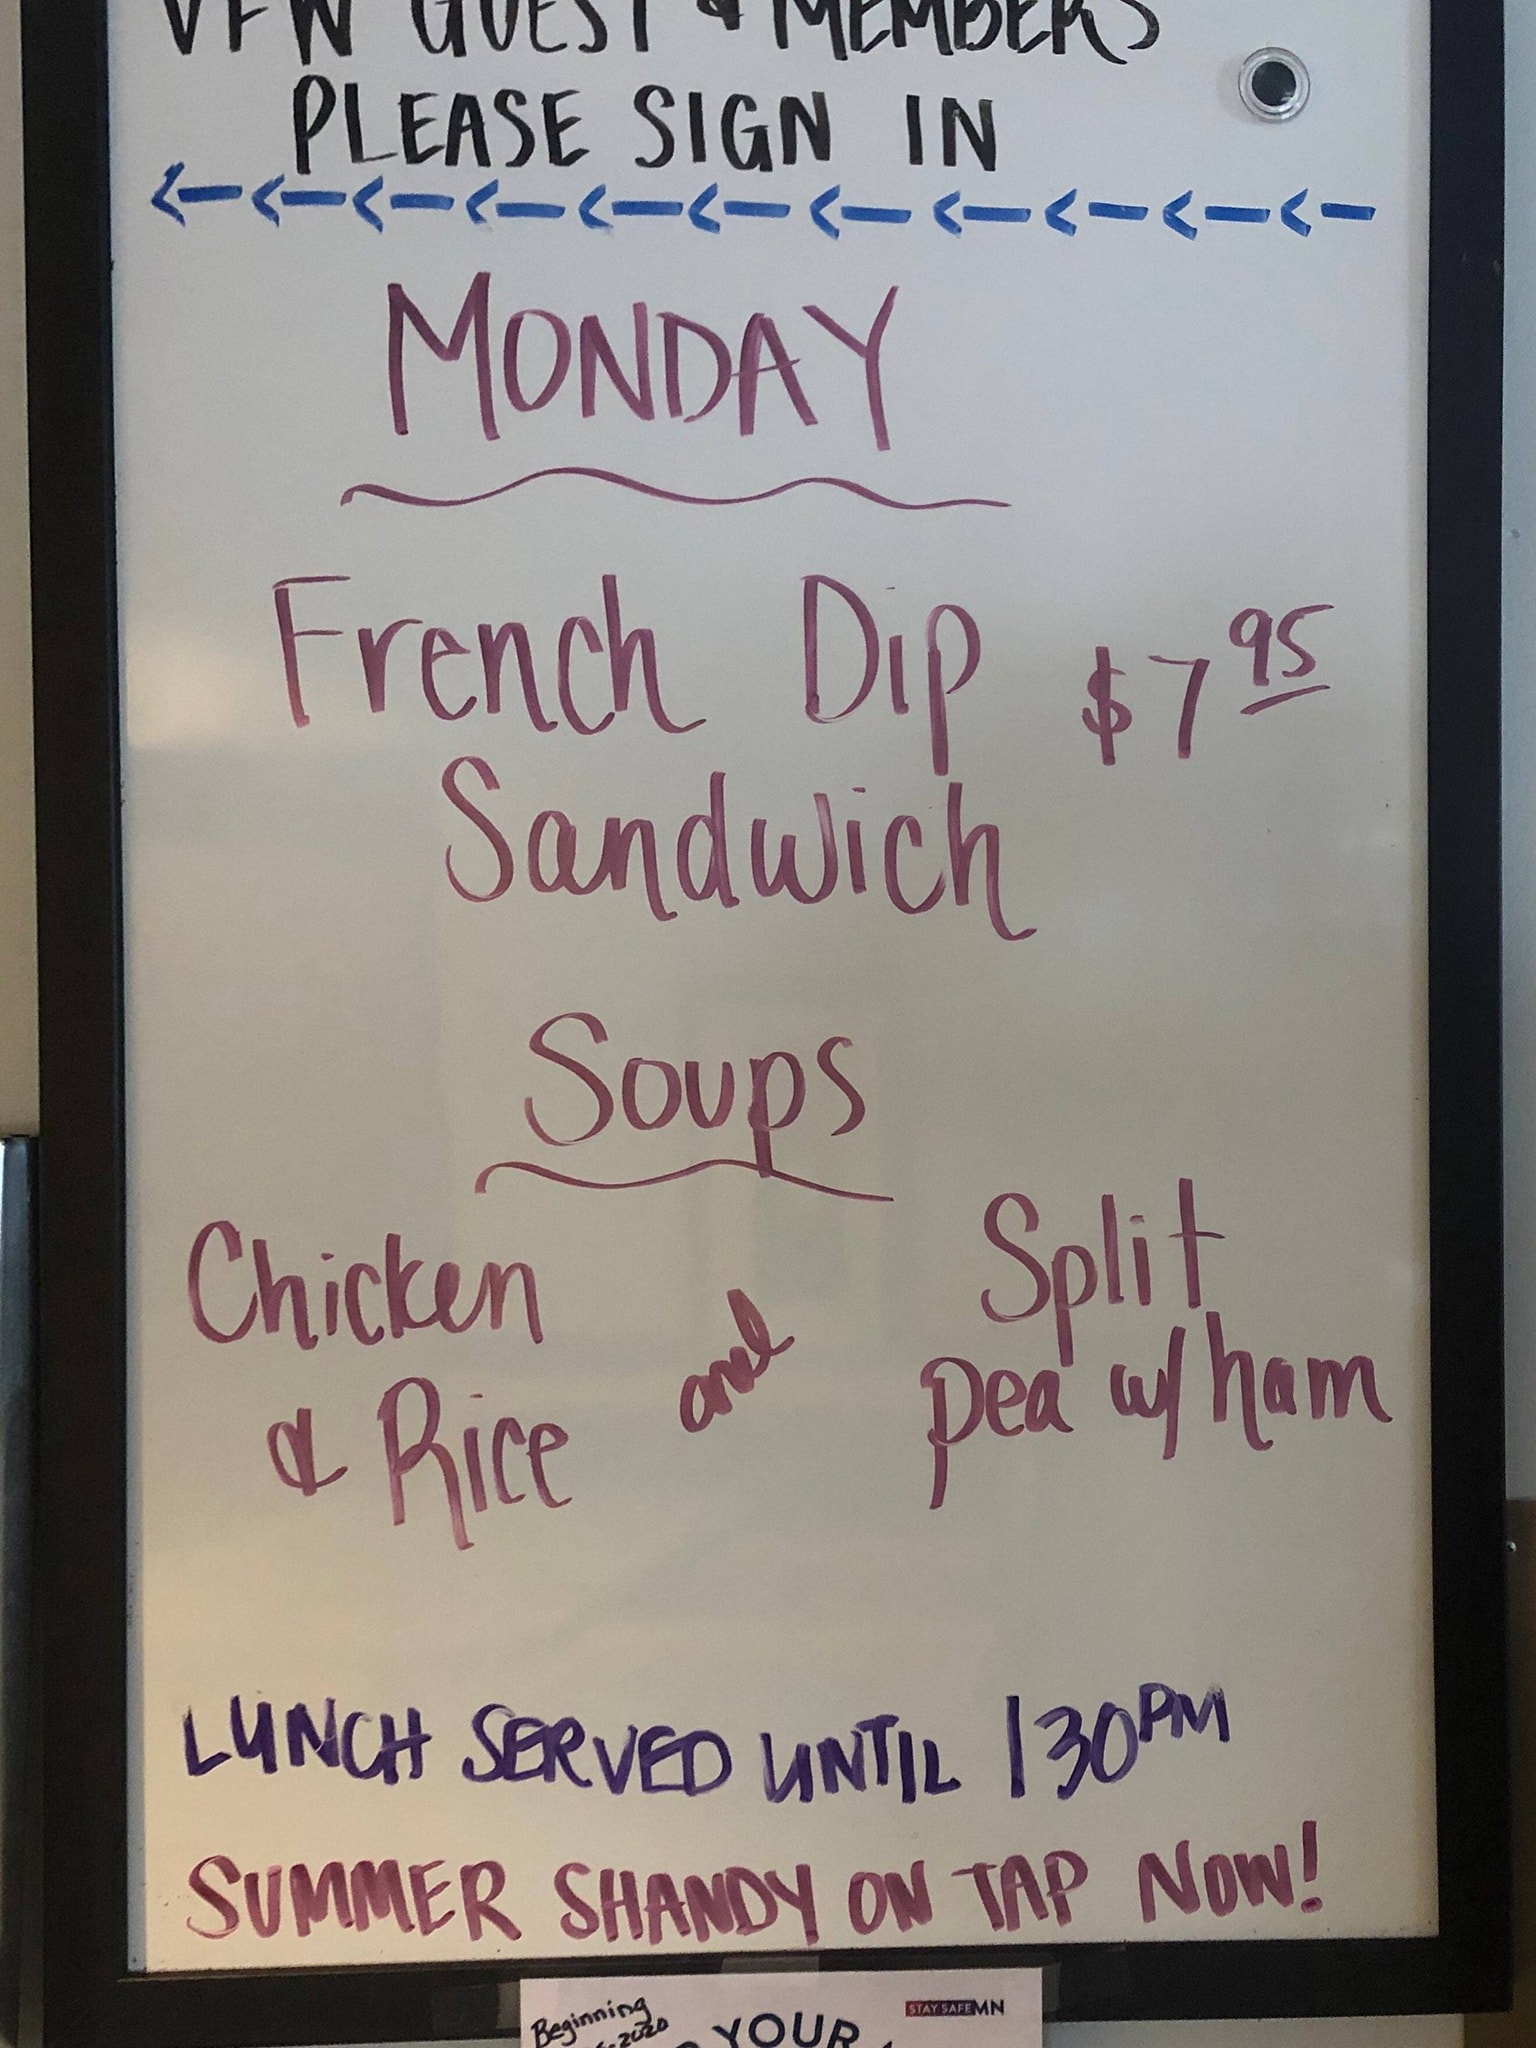 VFW GUEST & MEMBERS
PLEASE SIGN IN
MONDAY
French Dip $7 95
Sandwich
Soups
Chicken
& Rice
and
Split
pea w/ ham
LUNCH SERVED UNTIL 130PM
SUMMER SHANDY ON TAP NOW!
Beginning
2020
YOUR
STAY SAFE MN